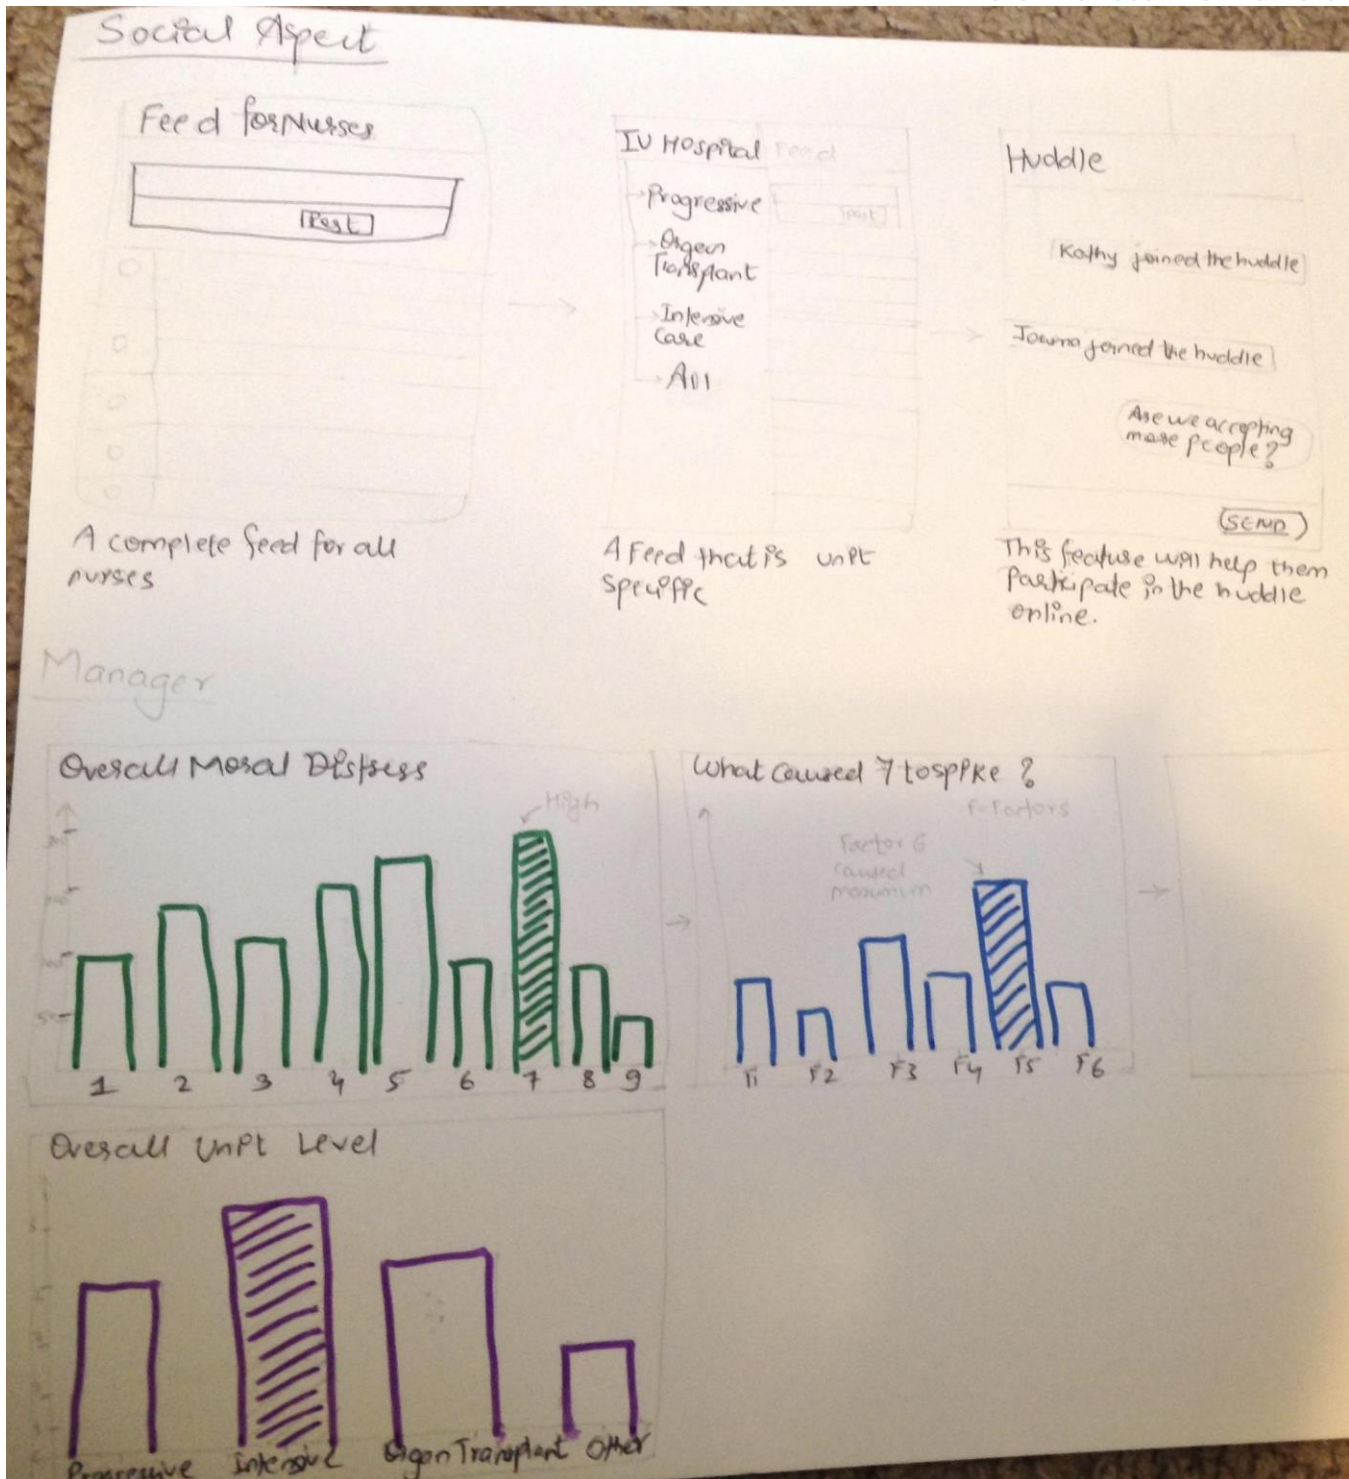 Social Aspect
Feed for Nurses
Post
A complete feed for all
nurses
IU Hospital Feed
Progressive
Post
Organ
Transplant
Intensive
Care
A feed that is unit
specific
Huddle
Kathy joined the huddle
joined the huddle
Are we accepting
more people?
SEND
This feature will help them
Participate in the huddle
online.
Manager
Overall Moral Distress
High
1 2 3 4 5 6 7 8 9
What caused 7 to spike ?
F-Factors
Factor 6
caused
maximum
F1 F2 F3 F4 F5 F6
Overall Unit Level
Progressive Intensive Organ Transplant Other